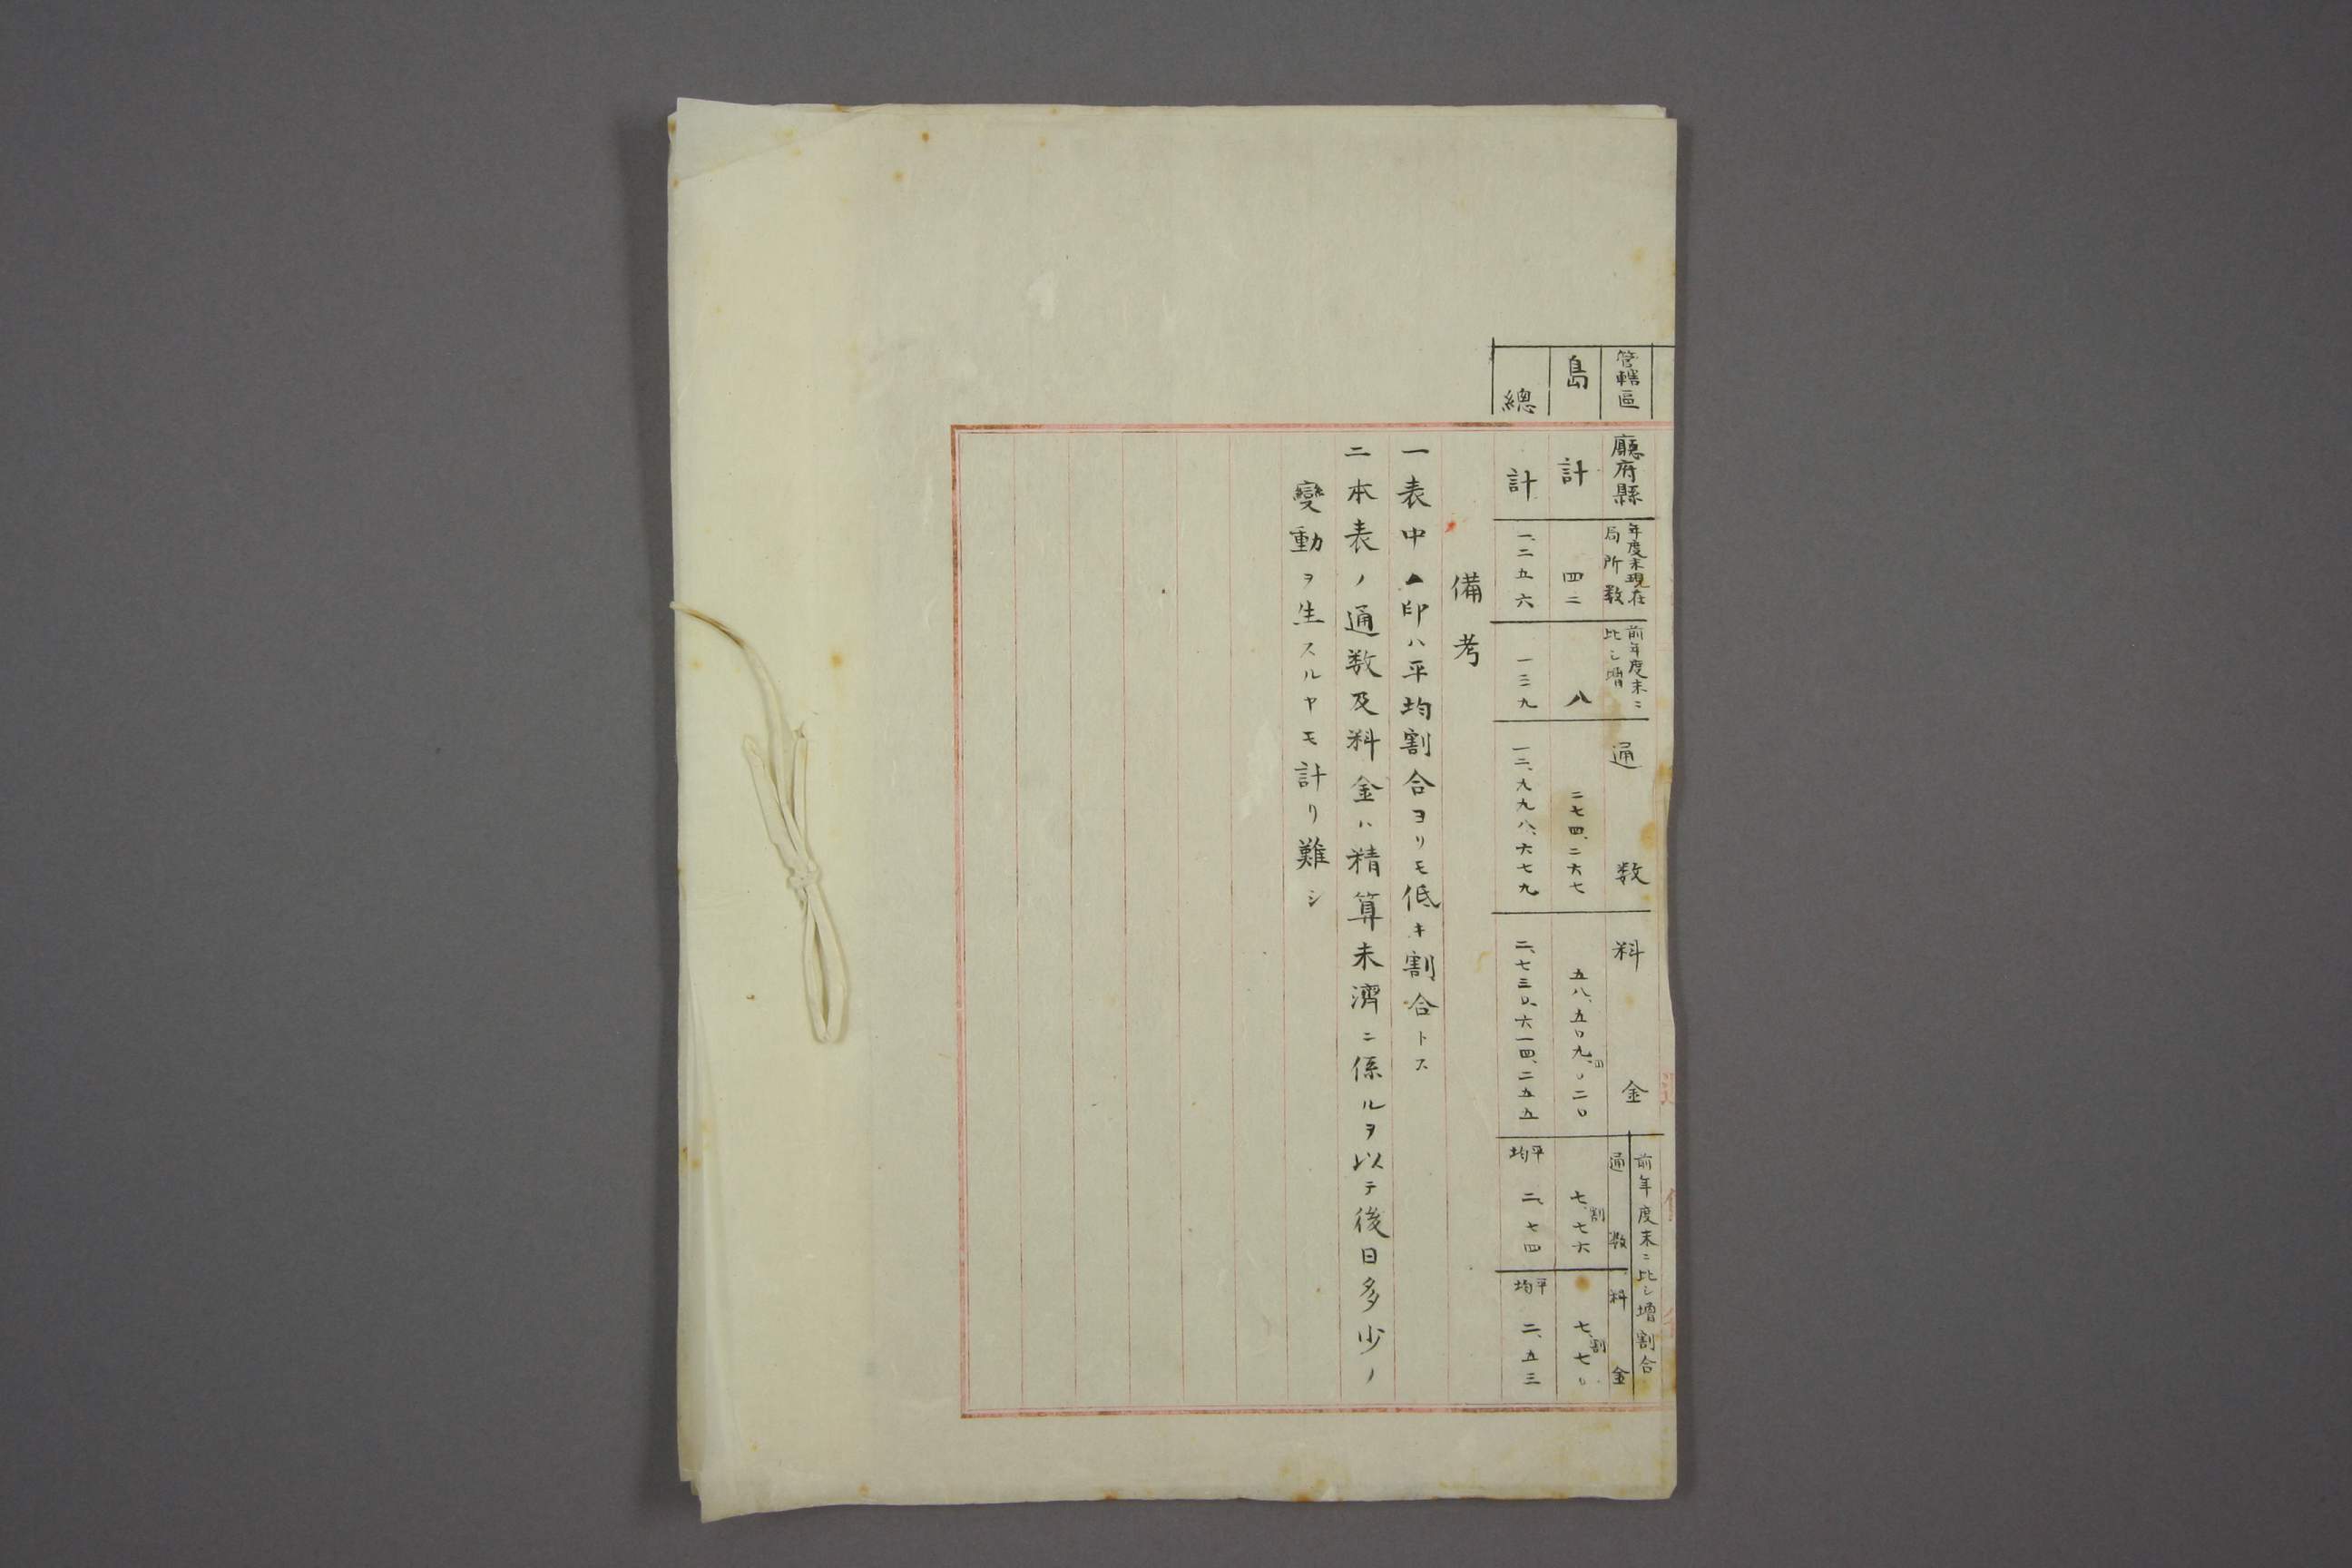 管轄區 廳府縣 年度末現在局所数 前年度末ニ比シ増 通数 料金 前年度末ニ比シ増割合 通数 料金
島 計 四二 八 二七四、二六七 五八、五〇九、円〇二〇 七、割七六 七、割七〇
總計 一、二五六 一三九 一二、九九八、六七九 二、七三〇、六一四、二五五 平均 二、七四 平均 二、五三
備考
一表中▲印ハ平均割合ヨリモ低キ割合トス
二本表ノ通数及料金ハ精算未濟ニ係ルヲ以テ後日多少ノ
變動ヲ生スルヤモ計リ難シ